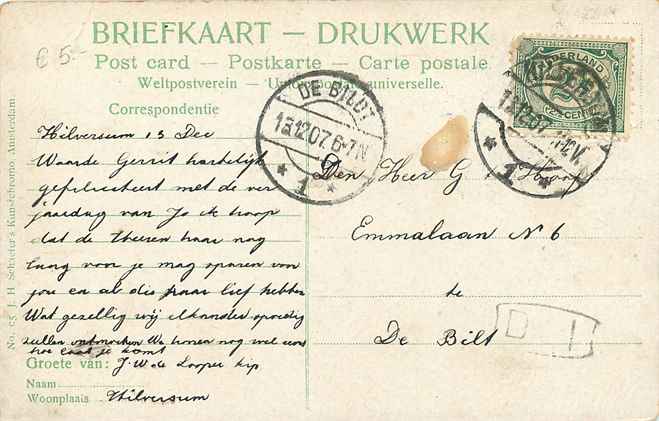 € 5.-
BRIEFKAART — DRUKWERK
Post card — Postkarte — Carte postale
Weltpostverein — Union postale universelle.
Correspondentie
NEDERLAND
2½
CENT
DE BILDT
13.12.07. 6-7N
1
12.07. 11-12V.
1
Hilversum 13 Dec
Waarde Gerrit hartelijk
gefeliciteerd met de ver
jaardag van Jo ik hoop
dat de Heeren haar nog
lang voor je mag sparen voor
jou en al die haar lief hebben
Wat gezellig wij elkander spoedig
zullen ontmoeten We horen nog wel eens
hoe laat je komt
Groete van: J. W. de Looper Kip
Naam
Woonplaats Hilversum
Den Heer G.
Emmalaan No 6
te
De Bilt
No. 55 J. H. Schaefer's Kunstchromo, Amsterdam.